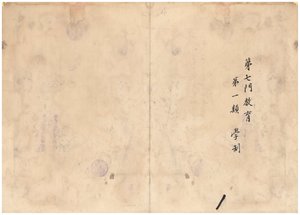 第七門教育
第一類 學制